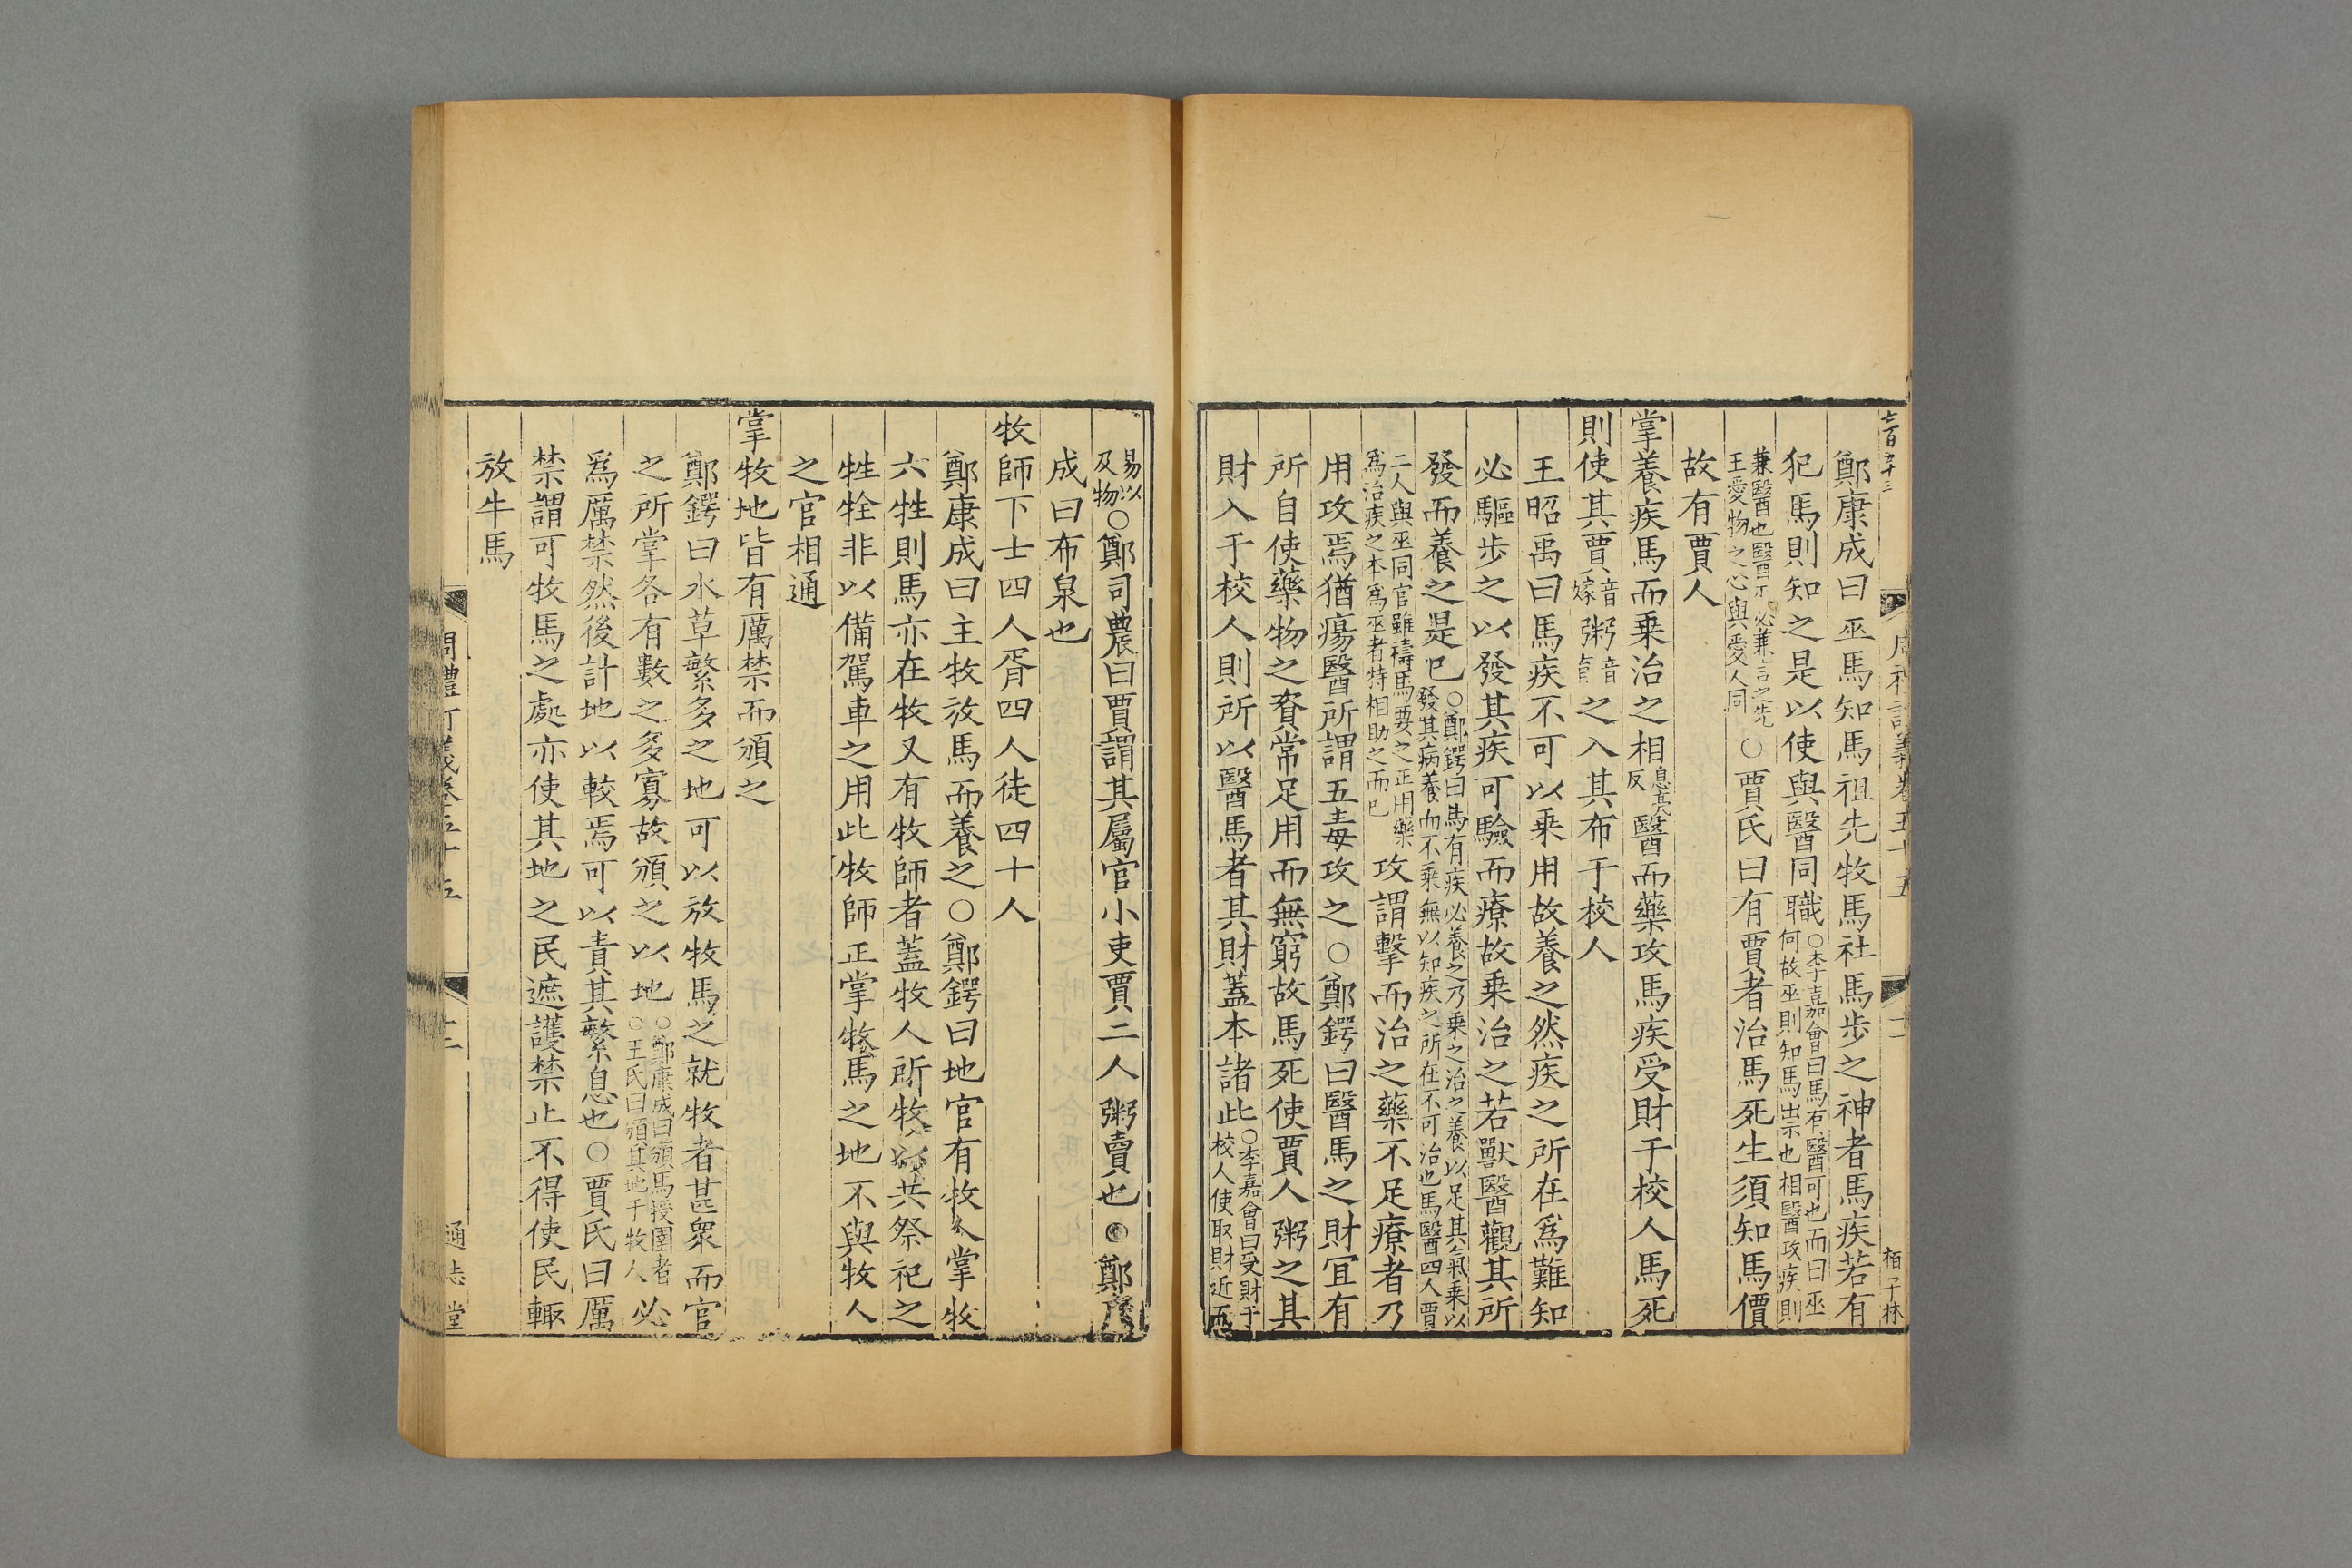 鄭康成曰巫馬知馬祖先牧馬社馬步之神者馬疾若有
犯馬則知之是以使與醫同職
○李嘉會曰馬有醫可也而曰巫
何故巫則知馬祟也相醫攻疾則
兼醫也醫不必兼言之先
王愛物之心與愛人同
○賈氏曰有賈者治馬死生須知馬價
故有賈人
掌養疾馬而乗治之相
息亮
反
醫而藥攻馬疾受財于校人馬死
則使其賈
音
嫁
粥
音
育
之入其布于校人
王昭禹曰馬疾不可以乗用故養之然疾之所在爲難知
必驅步之以發其疾可驗而療故乗治之若獸醫觀其所
發而養之是已
○鄭鍔曰馬有疾必養之乃乗之治之養以足其氣乗以
發其病養而不乗無以知疾之所在不可治也馬醫四人賈
二人與巫同官雖禱馬要之正用藥
爲治疾之本爲巫者特相助之而已
攻謂擊而治之藥不足療者乃
用攻焉猶瘍醫所謂五毒攻之○鄭鍔曰醫馬之財冝有
所自使藥物之資常足用而無窮故馬死使賈人粥之其
財入于校人則所以醫馬者其財蓋本諸此
○李嘉會曰受財于
校人使取財近
易以
及物
○鄭司農曰賈謂其屬官小吏賈二人粥賣也○鄭康
成曰布泉也
牧師下士四人胥四人徒四十人
鄭康成曰主牧放馬而養之○鄭鍔曰地官有牧人掌牧
六牲則馬亦在牧又有牧師者蓋牧人所牧以共祭祀之
牲牷非以備駕車之用此牧師正掌牧馬之地不與牧人
之官相通
掌牧地皆有厲禁而頒之
鄭鍔曰水草繁多之地可以放牧馬之就牧者甚衆而官
之所掌各有數之多寡故頒之以地
○鄭康成曰頒馬授圉者
○王氏曰頒其地于牧人
必
爲厲禁然後計地以較焉可以責其繁息也○賈氏曰厲
禁謂可牧馬之處亦使其地之民遮護禁止不得使民輙
放牛馬
通志堂